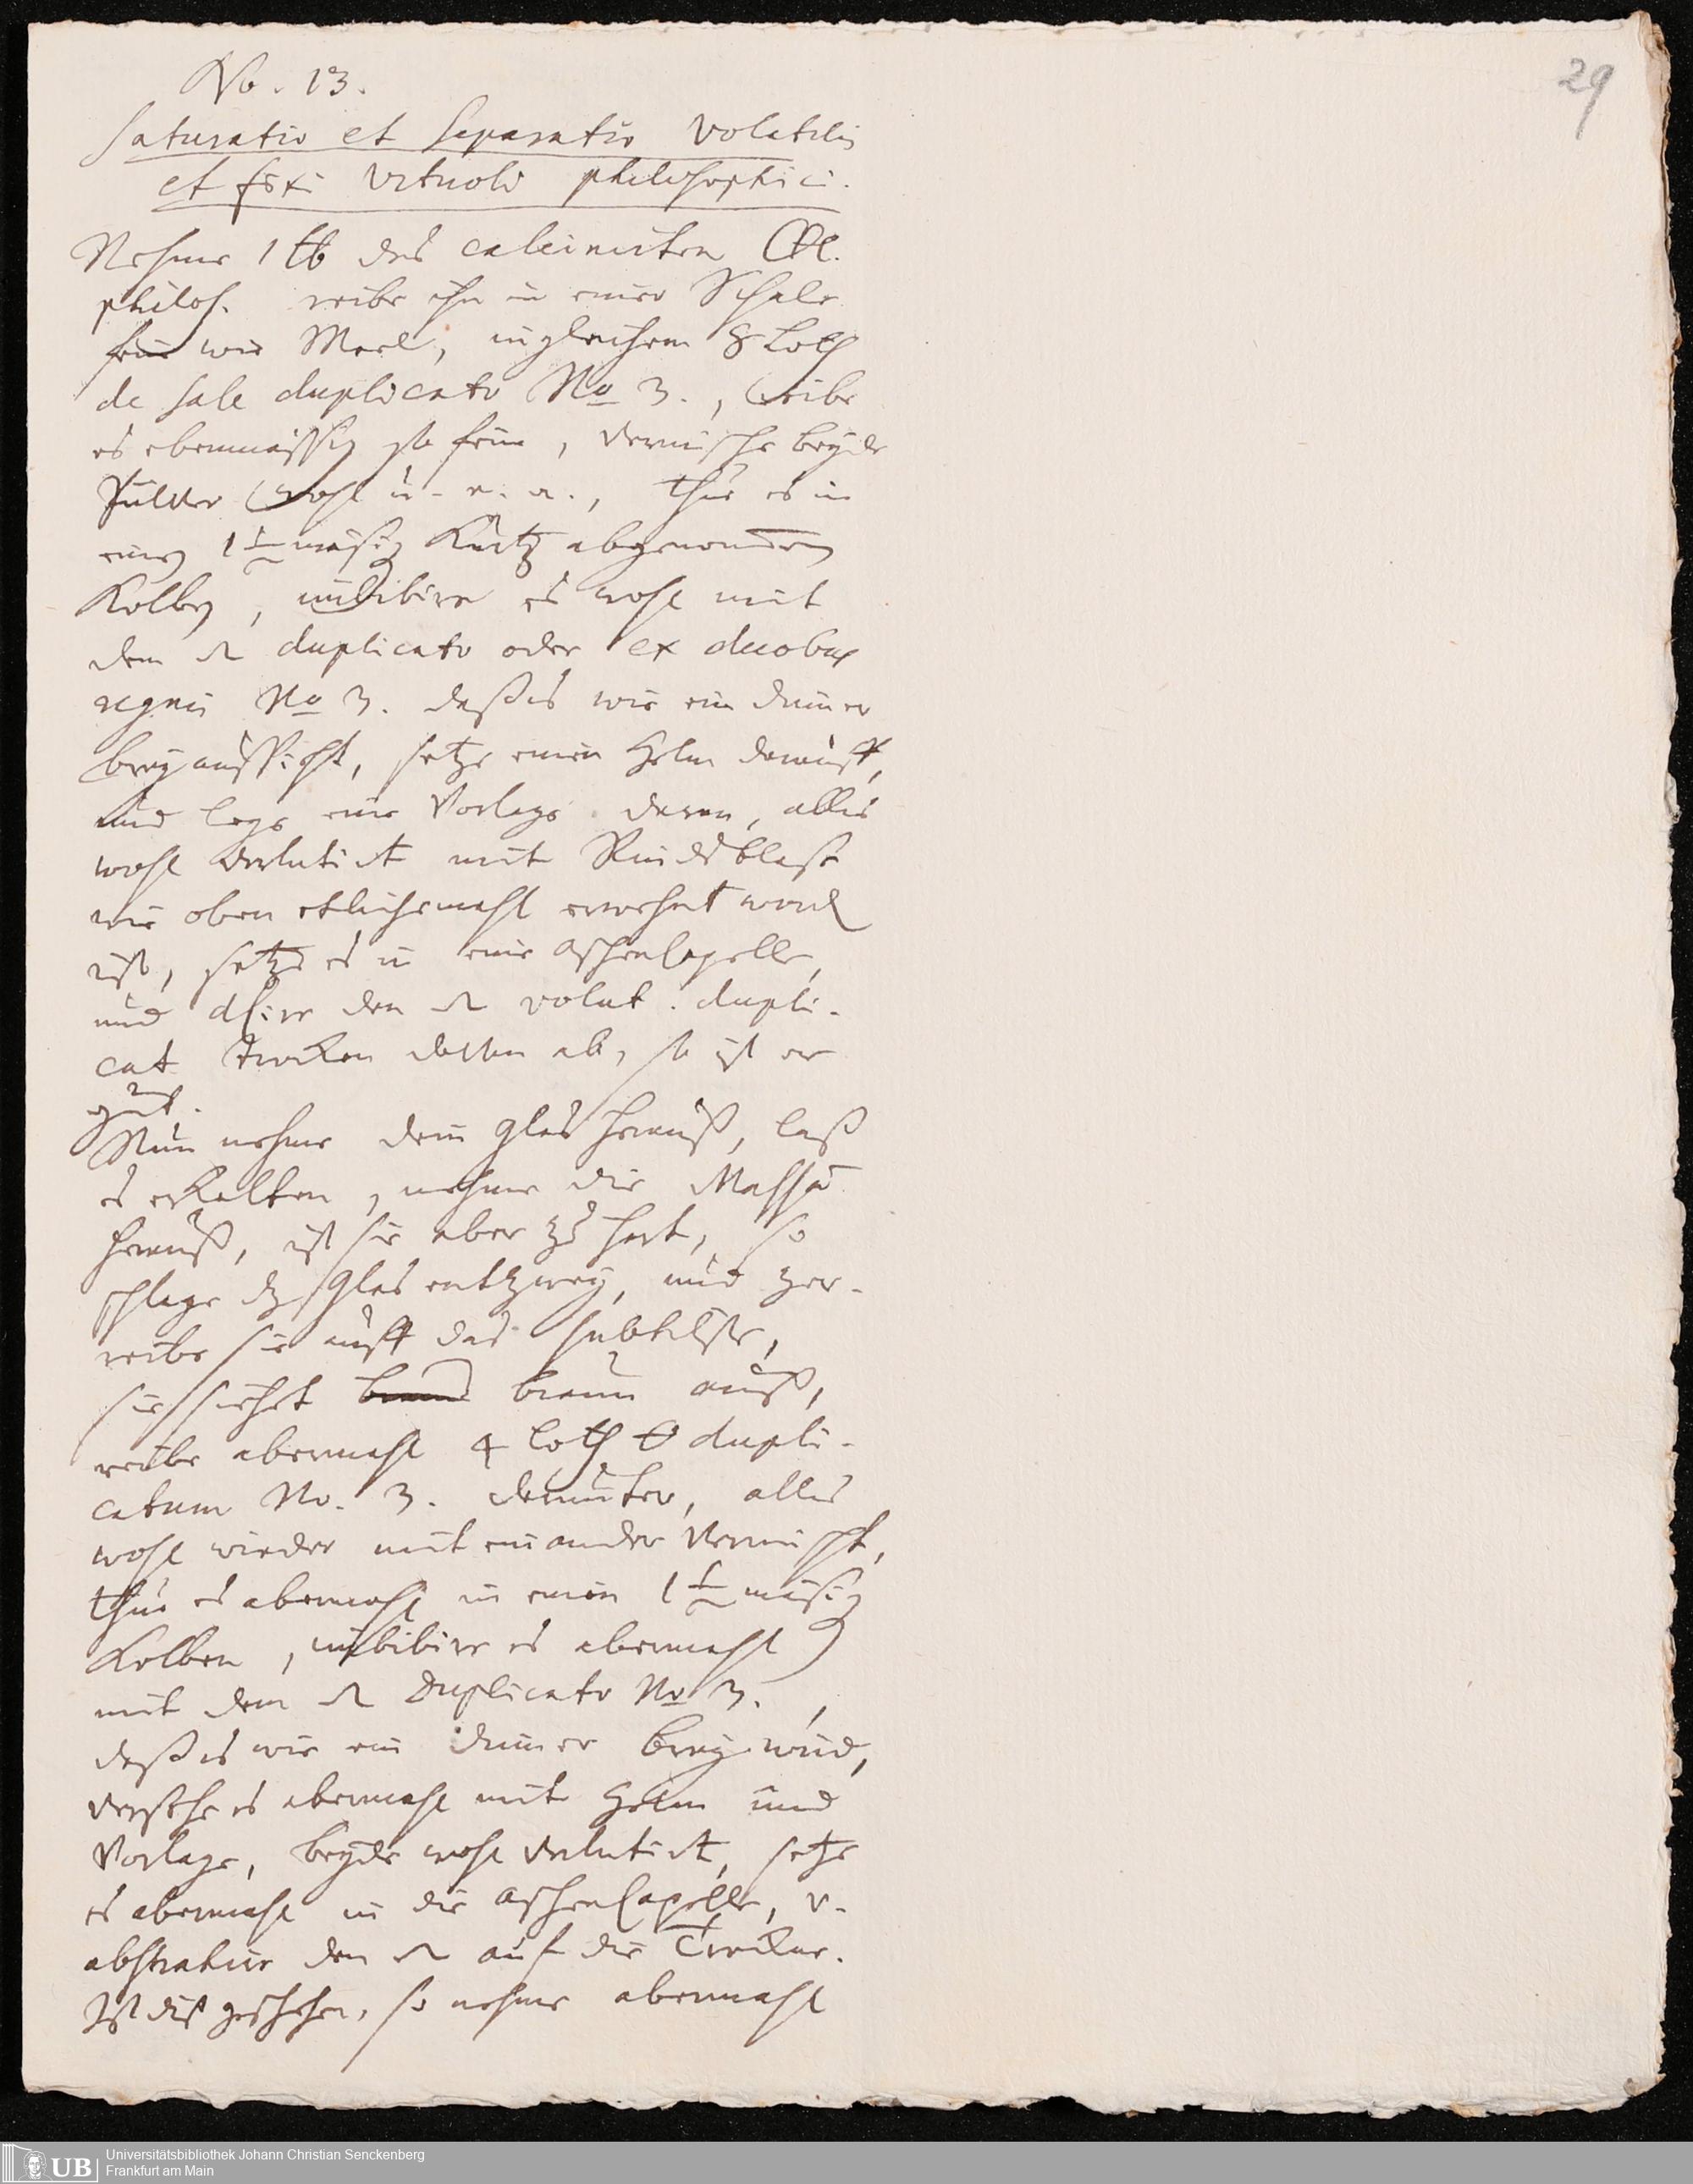 29
No. 13.
Saturatio et Separatio Volatilis
et fixi Vitrioli philosophici.
Nehme 1 ℔ des calcinirten
philos. reibe ihn in einer Schale
fein wie Meel, ingleichem 8 Loth
de sale duplicato No 3., reibe
es ebenmässig so fein, vermische beyde
Pulver wohl u. e. a., thue es in
einen 1 mäsig Kurtz abgenommen
Kolben, imbibire es wohl mit
dem duplicato oder ex duobus
regnis No 3. daß es wie ein dünner
brey aussieht, setze einen Helm darauff,
und lege eine Vorlage daran, alles
wohl verlutirt mit Rindsblase
wie oben etlichemahl erwehnt word
ist, setze es in eine Aschencapelle,
und den volat. dupli-
cat trocken davon ab, so ist er
gut.
Nun nehme dein Glas herauß, laß
es erkalten, nehme die Massa
herauß, ist sie aber zu hart, so
schlage dz Glas entzwey, und zer-
reibe sie auff das subtilste,
sie siehet braun auß,
reibe abermahl 4 loth dupli-
catum No. 3. darunter, alles
wohl wieder mit einander vermischt,
thue es abermahl in einen 1 mäsig
Kolben, imbibire es abermahl
mit dem Duplicato No 3.,
daß es wie ein dünner brey wird,
versehe es abermahl mit Helm und
Vorlage, beyde wohl verlutirt, setze
es abermahl in die Aschencapelle, v.
abstrahire den auf die Trockne.
Ist diß geschehen, so nehme abermahl
UB
Universitätsbibliothek Johann Christian Senckenberg
Frankfurt am Main